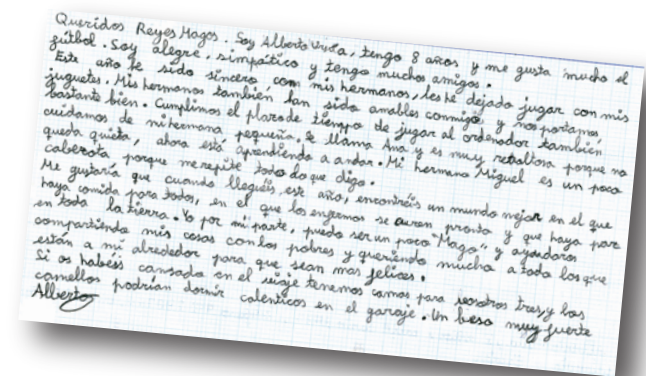 Queridos Reyes Magos. Soy Alberto, tengo 8 años y me gusta mucho el
fútbol. Soy alegre, simpático y tengo muchos amigos.
Este año he sido sincero, con mis hermanos, les he dejado jugar con mis
juguetes. Mis hermanos también han sido amables conmigo y nos portamos
bastante bien. Cumplimos el plazo de tiempo de jugar al ordenador también
cuidamos de mi hermana pequeña, se llama Ana y es muy revoltosa porque no
queda quieta, ahora está aprendiendo a andar. Mi hermano Miguel es un poco
cabezota, porque me repite todo lo que digo.
Me gustaría que cuando lleguéis este año, encontréis un mundo mejor en el que
haya comida para todos, en el que los enfermos se curen pronto y que haya paz
en toda la tierra. Yo por mi parte, puedo ser un poco "Mago" y ayudaros
compartiendo mis cosas con los pobres y queriendo mucho a todo los que
están a mi alrededor para que sean mas felices.
Si os habéis cansado en el viaje tenemos camas para vosotros tres, y los
camellos podrían dormir calenticos en el garaje. Un beso muy fuerte
Alberto